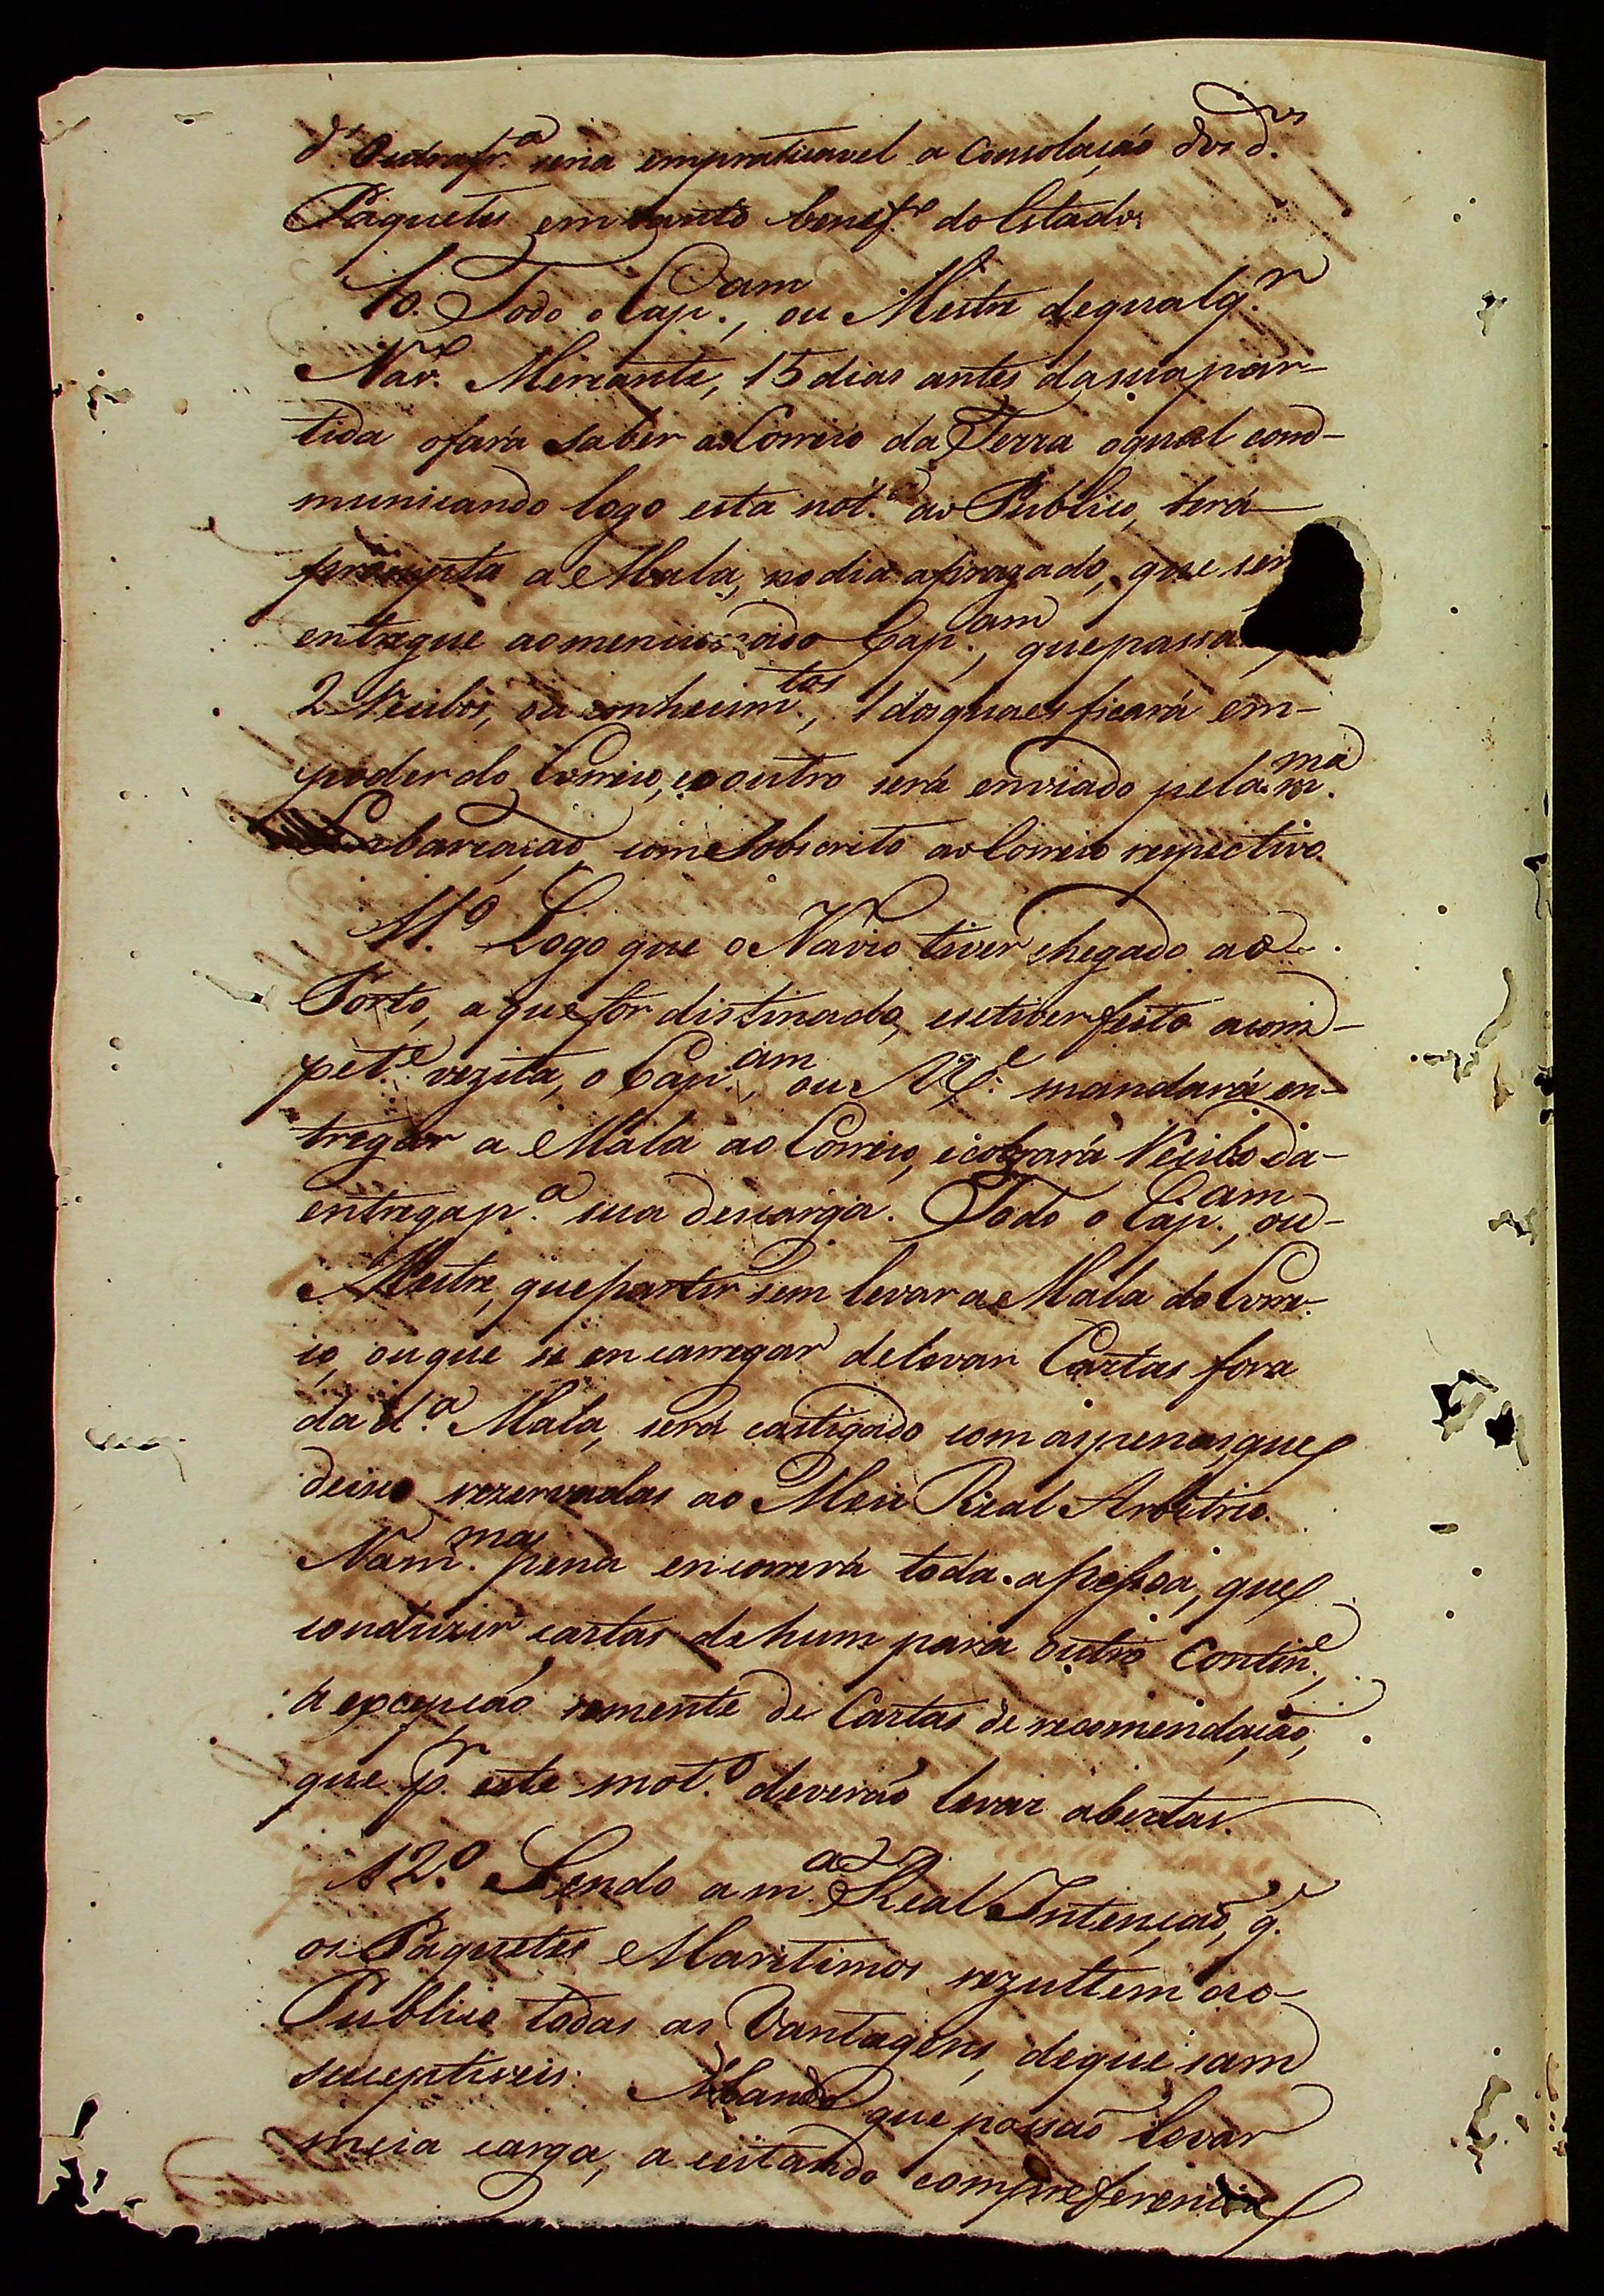 d'Outra fr.ª seria empraticavel a Consolaçaõ dos d.os
Paquetes em tanto benef.º do Estado.
10. Todo o Cap.am, ou Mestre de qualq.r
Nav.º Mercante, 15 dias antes da sua par-
tida o fará saber ao Correio da Terra o qual com-
municando logo esta not.ª ao Publico, terá
prompta a Mala, no dia aprazado, que ser
entregue ao mencionado Cap.am, que passa
2 Recibos, ou conhecim.tos, 1 dos quaes ficará em-
poder do Correio, e o outro será enviado pela m.ma
Ebarcaçaõ, com Sobscrito ao Correio respectivo.
11.º Logo que o Navio tiver chegado ao
Porto, a que for distinado, e estiver feita a com-
pet.e vezita, o Cap.am, ou M.e mandará en-
tregar a Mala ao Correio, e cobrará Recibo da-
entrega p.ª sua descarga. Todo o Cap.am, ou-
Mestre, que partir sem levar a Mala do Corre-
io, ou que se encarregar de levar Cartas fora
da d.ª Mala, será castigado com as penas, que
deixo rezervadas ao Meu Real Arbitrio.
Na m.ma pena encorrerá toda a pessoa, que
conduzir cartas de hum para outro Contin.e,
á excepçaõ somente de Cartas de recomendaçaõ,
que p.r este mot.º deveraõ levar abertas.
12.º Sendo a m.ª Real Intençaõ, q.e
os Paquetes Maritimos rezultem ao-
Publico todas as Vantagens, de que sam
suceptiveis: Mando que possaõ levar
meia carga, aceitando com preferencia